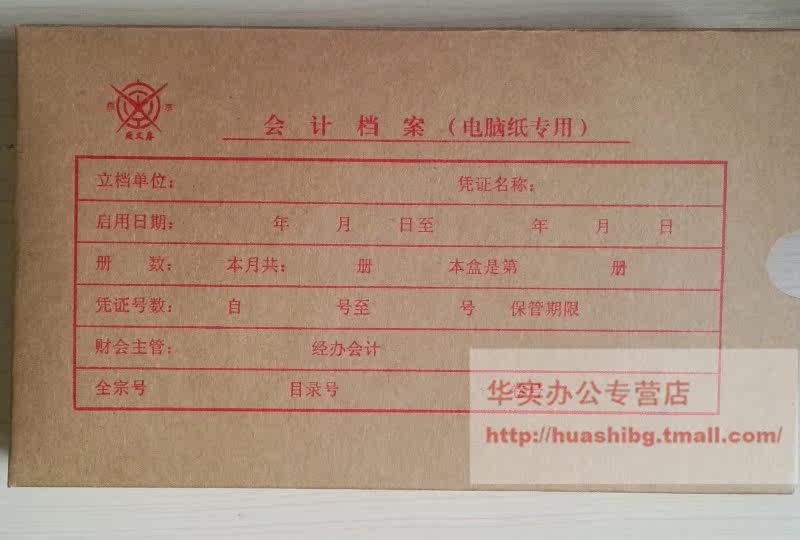 会计档案（电脑纸专用）
立档单位： 凭证名称：
启用日期： 年 月 日至 年 月 日
册 数： 本月共： 册 本盒是第 册
凭证号数： 自 号至 号 保管期限
财会主管： 经办会计
全宗号 目录号
华实办公专营店
http://huashibg.tmall.com/